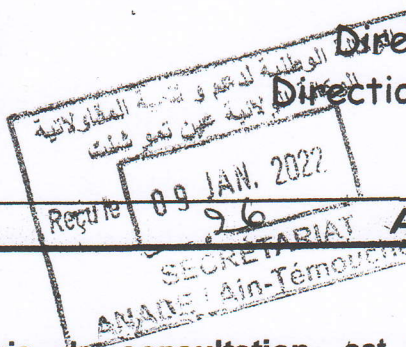 Dire
الوطنية لدعم و تنمية المقاولاتية
Directio
الولائية عين تموشنت
Reçu le 09 JAN. 2022
26
A
SECRÉTARIAT
ANADE / Ain-Témouchent
consultation est